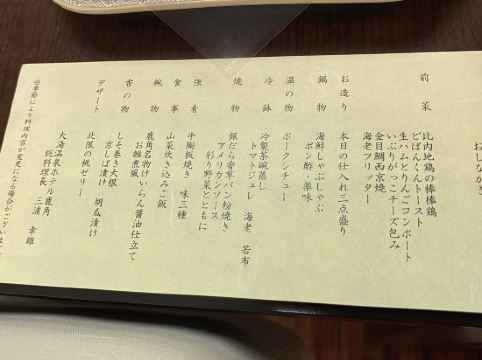 おしながき
前菜
比内地鶏の棒棒鶏
どぶろくトースト
生ハムとりんごコンポート
いぶりがっこチーズ包み
金目鯛西京焼
海老フリッター
お造り
本日の仕入れ三点盛り
鍋物
海鮮しゃぶしゃぶ
ポン酢 薬味
温の物
ポークシチュー
冷鉢
冷製茶碗蒸し
トマトジュレ 海老 若布
焼物
銀だら香草パン粉焼き
アメリカンソース
彩り野菜とともに
強肴
牛陶板焼き 味三種
食事
山菜炊き込みご飯
椀物
鹿角名物けいらん醤油仕立て
お雑煮風
香の物
しそ巻き大根
京しば漬け 胡瓜漬け
デザート
北限の桃ゼリー
大湯温泉ホテル鹿角
総料理長 三浦 幸雄
季節により料理内容が変更になる場合がございます